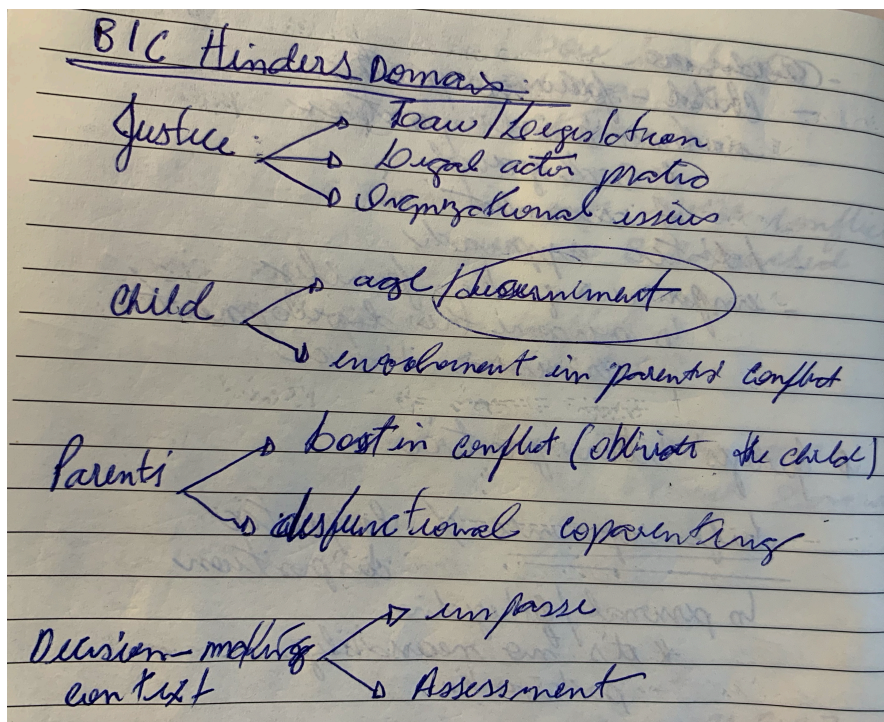 BIC Hinders Domain:
Justice: Law / Legislation
Legal actor
Organizational issues
Child age / discernment
involvement in parents' conflict
Parents lost in conflict ( the child)
disfunctional coparenting
Decision-making impasse
context Assessment